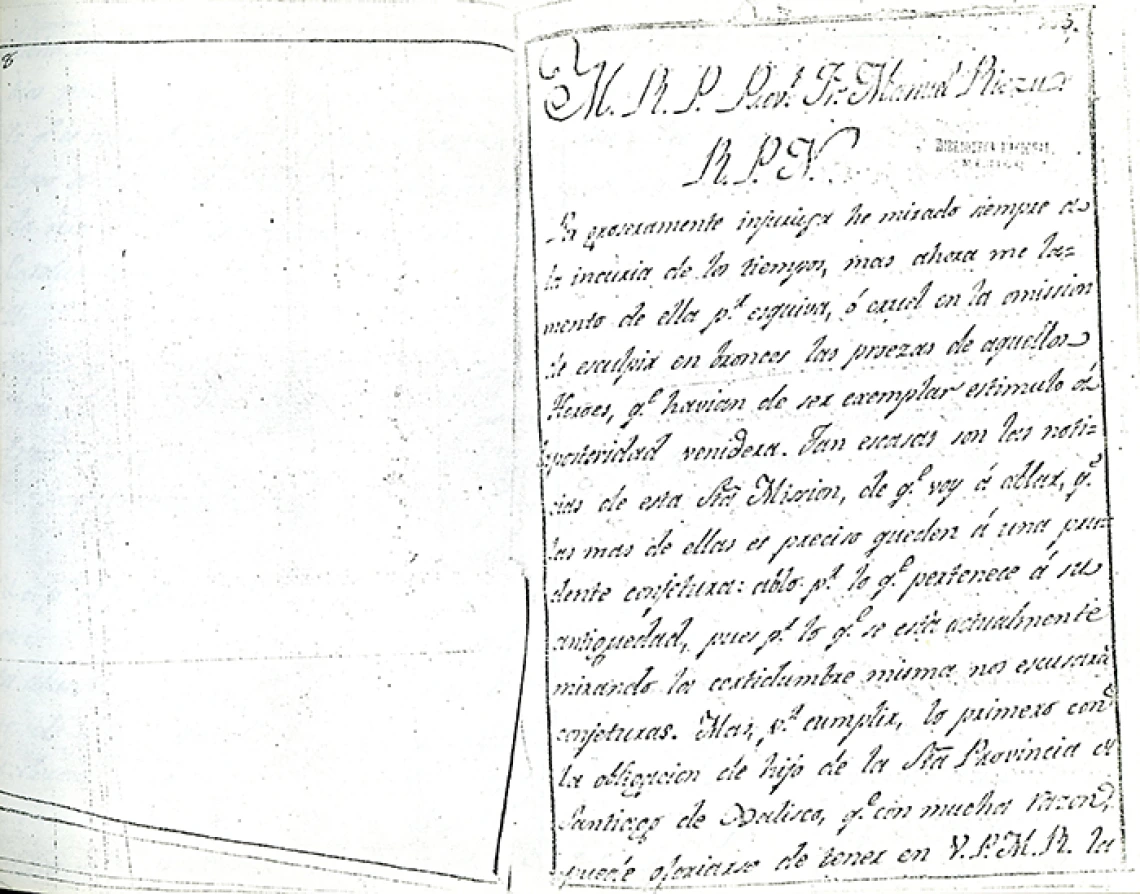 8
3.
M. R. P. Prov.l Fr. Manuel Riezu
R. P. N.
BIBLIOTECA NACIONAL
MEXICO
groseramente injuriosa he mirado siempre a
la incuria de los tiempos, mas ahora me la=
mento de ella p.r esquiva, ó cruel en la omission
de esculpir en bronces las proezas de aquellos
Heroes, q.e havian de ser exemplar estimulo á
la posteridad venidera. Tan escasas son las noti=
cias de esta Sta Mission, de q.e voy á ablar, q.e
las mas de ellas es preciso queden á una pru=
dente conjetura: ablo p.r lo q.e pertenece á su
antiguedad, pues p.r lo q.e se está actualmente
mirando la certidumbre misma nos escusará
conjeturas. Mas, p.a cumplir, lo primero con
la obligacion de hijo de la Sta Provincia de
Santiago de Xalisco, q.e con mucha razon,
puede gloriarse de tener en V. P. M. R. la